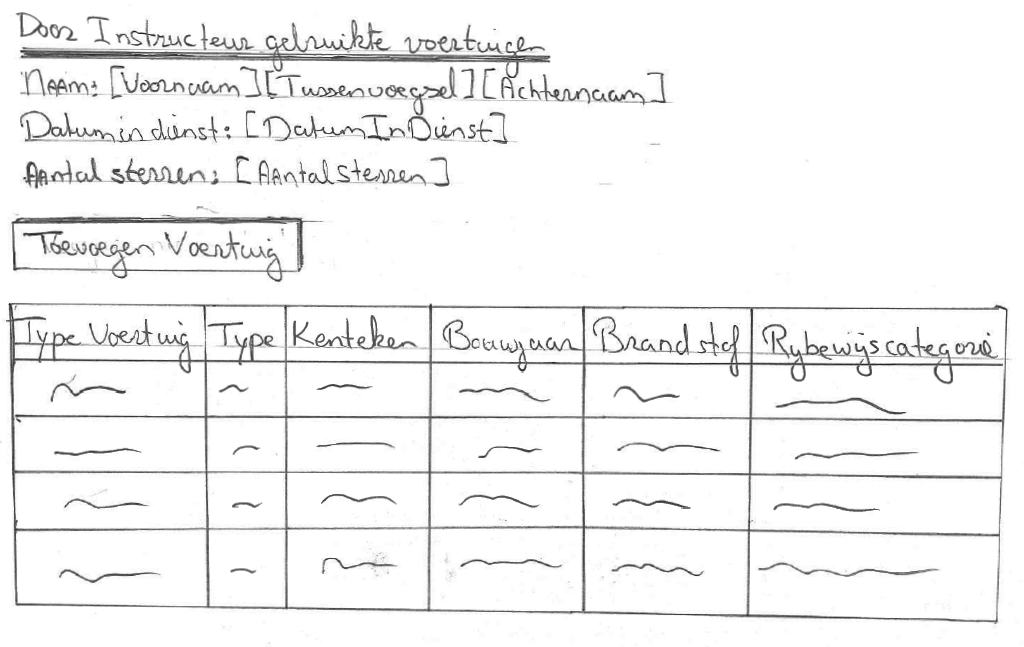 Door Instructeur gebruikte voertuigen
Naam: [Voornaam][Tussenvoegsel][Achternaam]
Datum in dienst: [DatumInDienst]
Aantal sterren: [AantalSterren]
Toevoegen Voertuig
Type Voertuig Type Kenteken Bouwjaar Brandstof Rijbewijscategorie